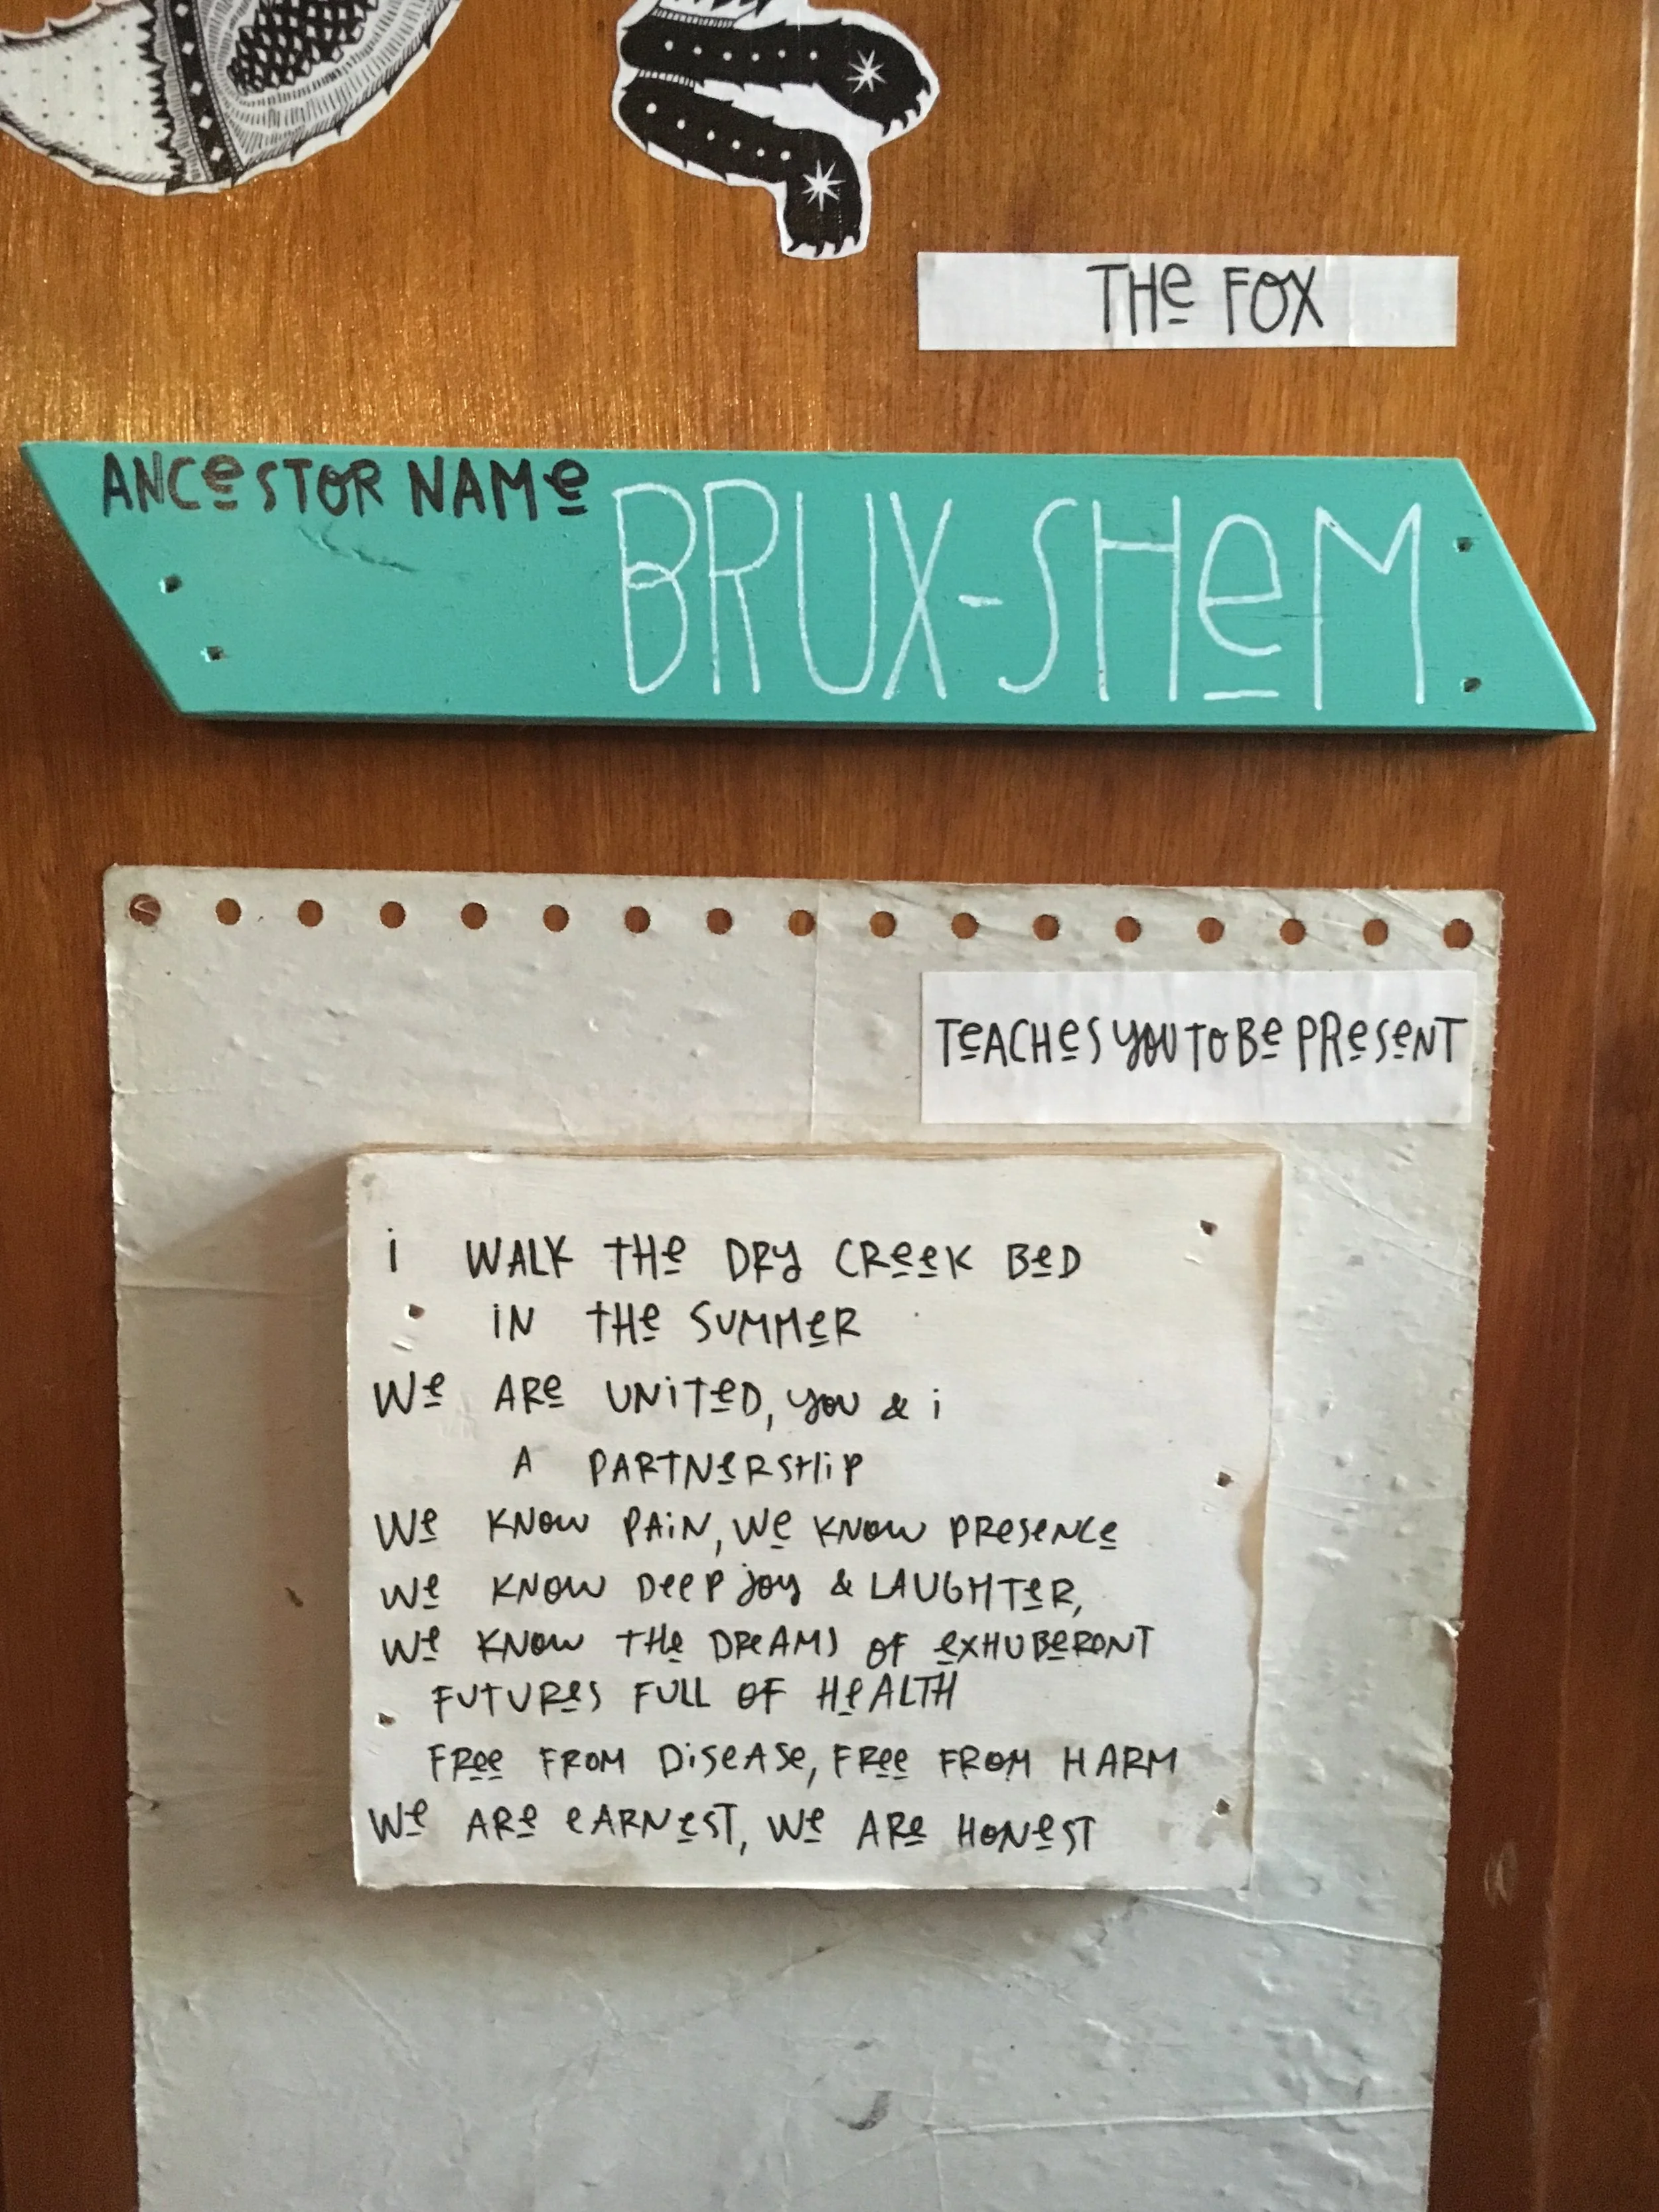 THe FOX
ANCeSTOR NAMe
BRUX-SHeM
TeACHeS YOU TO Be PReSeNT
i WALK THe DRY CReeK BeD
iN THe SUMMeR
We ARe UNiTeD, YOU & i
A PARTNeRSHiP
We KNOW PAiN, We KNOW PReSeNCe
We KNOW DeeP JOY & LAUGHTeR,
We KNOW THe DReAMS OF eXHUBeRONT
FUTUReS FULL OF HeALTH
FRee FROM DiSeASe, FRee FROM HARM
We ARe eARNeST, We ARe HONeST